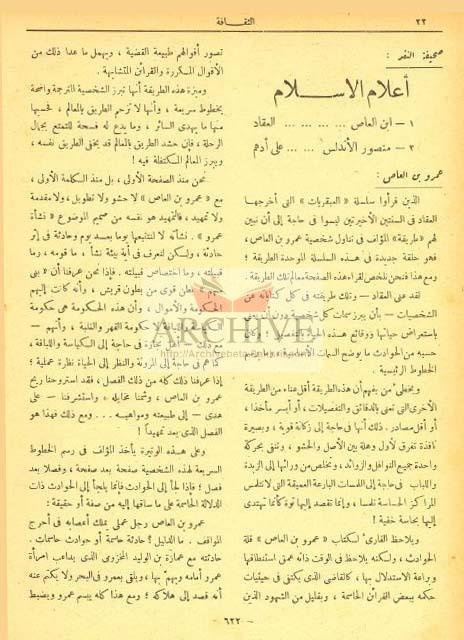 ٢٢
الثقافة
صحيفة النقد :
أعلام الاسلام
١ — ابن العاص ... ... ... ... العقاد
٢ — منصور الأندلس ... ... على أدهم
عمرو بن العاص :
الذين قرأوا سلسلة « العبقريات » التى أخرجها
العقاد فى السنتين الأخيرتين ليسوا فى حاجة إلى أن نبين
لهم « طريقة » المؤلف فى تناول شخصية عمرو بن العاص ،
فهو حلقة جديدة فى هذه السلسلة الموحدة الطريقة ؛
ومع هذا فنحن نلخص لقراء هذه الصفحة معالم تلك الطريقة .
لقد عنى العقاد — وتلك طريقته فى كل كتاباته عن
الشخصيات — بأن يبرز سمات كل شخصية دون أن يعنى
باستعراض حياتها ووقائع هذه الحياة
حسبه من الحوادث ما يوضح السمات
الخطوط الرئيسية .
ويخطىء من يفهم أن هذه الطريقة أقل عناء من الطريقة
الأخرى التى تعنى بالدقائق والتفصيلات ، أو أيسر مأخذا ،
أو أقل مصادر . ذلك أنها فى حاجة إلى زكانة قوية ، وبصيرة
نافذة تفرق لأول وهلة بين الأصل والحشو ، وتنفى بحركة
واحدة جميع النوافل والزوائد ، وتخلص من ورائها إلى الزبدة
واللباب . فى حاجة إلى اللمسات البارعة العميقة التى لا تتلمس
المراكز الحساسة تلمسا ، وإنما تقصد إليها توا كأنما تهتدى
إليها بحاسة خفية !
ويلاحظ القارىء لكتاب « عمرو بن العاص » قلة
الحوادث ، ولكنه يلاحظ فى الوقت ذاته عمق استنطاقها
وبراعة الاستدلال بها ، كالقاضى الذى يكتفى فى حيثيات
حكمه ببعض القرائن الحاسمة ، وبقليل من الشهود الذين
تصور أقوالهم طبيعة القضية ، ويهمل ما عدا ذلك من
الأقوال المكررة والقرائن المتشابهة .
وميزة هذه الطريقة أنها تبرز الشخصية المترجمة واضحة
بخطوط سريعة ، وأنها لا تزحم الطريق بالمعالم ، فحسبها
منها ما يهدى السائر ، وما يدع له فسحة للتمتع بجمال
الرحلة ، فإن حشد الطريق بالمعالم قد يخفى الطريق نفسه ،
ويبرز المعالم المكتظة فيه !
نحن منذ الصفحة الأولى ، بل منذ الكلمة الأولى ،
مع « عمرو بن العاص » لا حشو ولا تطويل ، ولا مقدمة
ولا تمهيد ، فالتمهيد هو نفسه من صميم الموضوع « نشأة
عمرو » . نشأته لا لنتتبعها يوما بعد يوم وحادثة فى إثر
حادثة ، ولكن لنعرف فى أية بيئة نشأ ، ما قومه ، وما
قبيلته ، وما اختصاص قبيلته . فإذا نحن عرفنا أن « بنى
بطن قوى من بطون قريش ، وأنه كانت إليهم
الحكومة والأموال ، وأن هذه الحكومة هى حكومة
حكومة القهر والغلبة ، وأنهم —
مع ذلك — فى حاجة إلى الكياسة واللباقة ،
كما هم فى حاجة إلى المرونة والنظر إلى الحياة نظرة عملية ؛
إذا عرفنا ذلك كله من ذلك الفصل ، فقد استروحنا ريح
عمرو بن العاص ، وشممنا مخايله ، واستشرفنا — على
هدى — إلى طبيعته ومواهبه . . . ومع ذلك فهذا هو
الفصل الذى يعد تمهيدا !
وعلى هذه الوتيرة يأخذ المؤلف فى رسم الخطوط
السريعة لهذه الشخصية صفحة بعد صفحة ، وفصلا بعد
فصل ؛ فإذا لجأ إلى الحوادث فإنما يلجأ إلى الحوادث ذات
الدلالة الحاسمة على ما ساقها إليه من صفة أو حقيقة :
عمرو بن العاص رجل عملى يملك أعصابه فى أحرج
المواقف . ما الدليل ؟ حادثة حاسمة أو حوادث حاسمات .
حادثته مع عمارة بن الوليد المخزومى الذى يداعب امرأة
عمرو أمامه ويهم بها ، ويلقى بعمرو فى البحر ولا يكتم عنه
أنه قصد إلى هلاكه ؛ ومع هذا كله يبسم عمرو ويضبط
— ٦٢٢ —
ARCHIVE